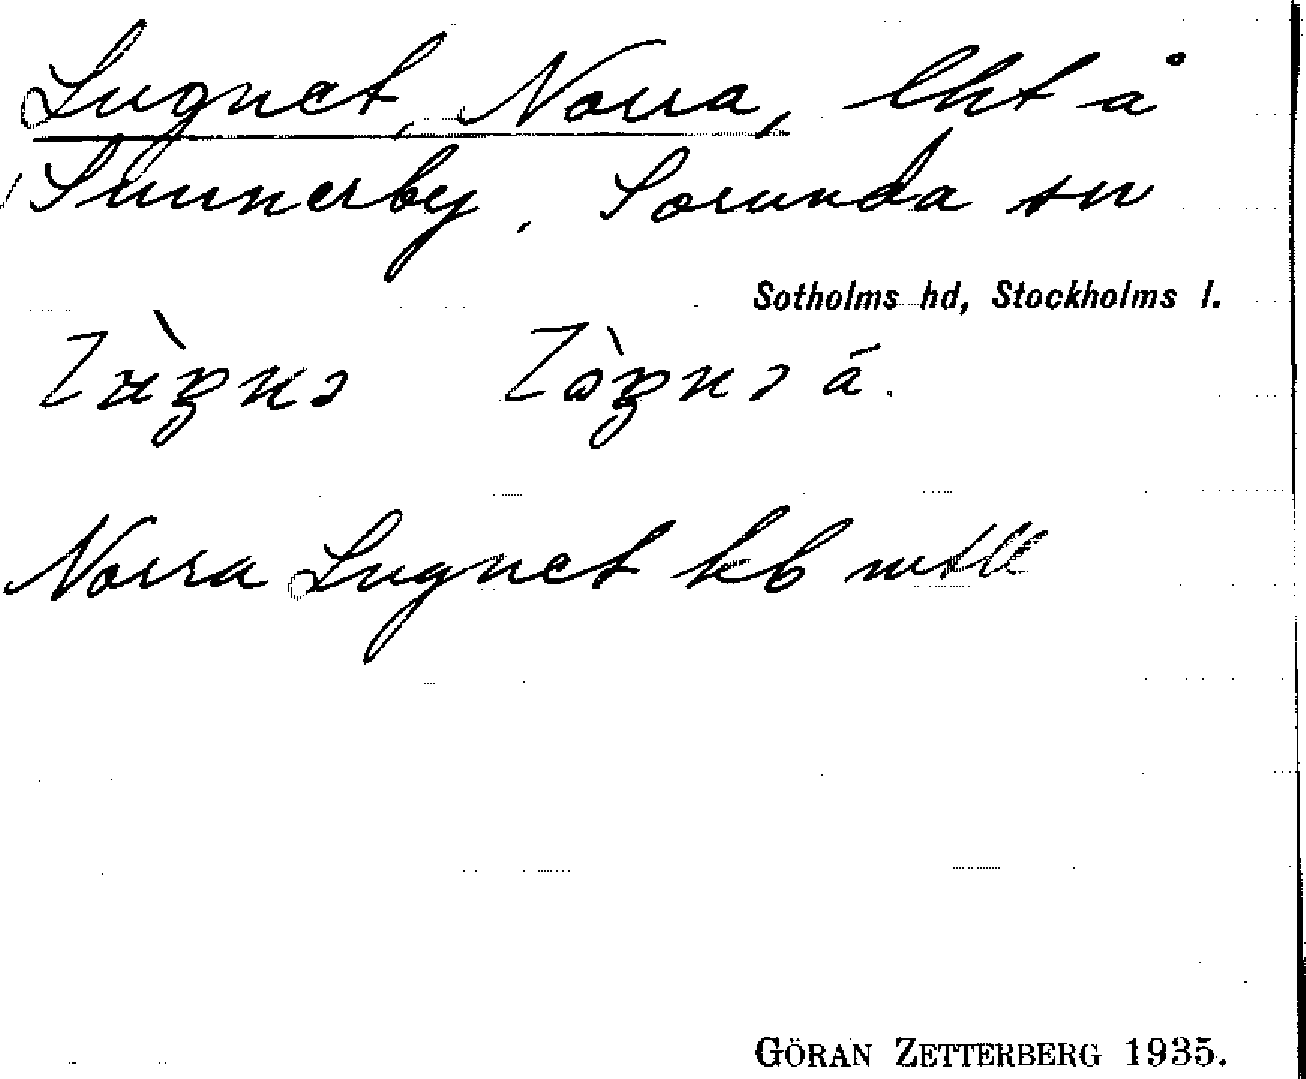 Lugnet, Norra, lht å
Sunnerby, Sorunda sn
Sotholms hd, Stockholms l.
Norra Lugnet kb mtll
GÖRAN ZETTERBERG 1935.